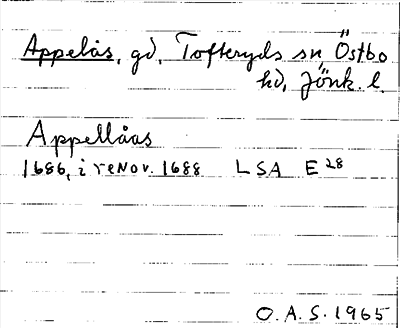 Appelås, gd, Tofteryds sn Östbo
hd, Jönk. l.
Appellåas
1686, i renov. 1688 LSA E 28
O. A. S. 1965